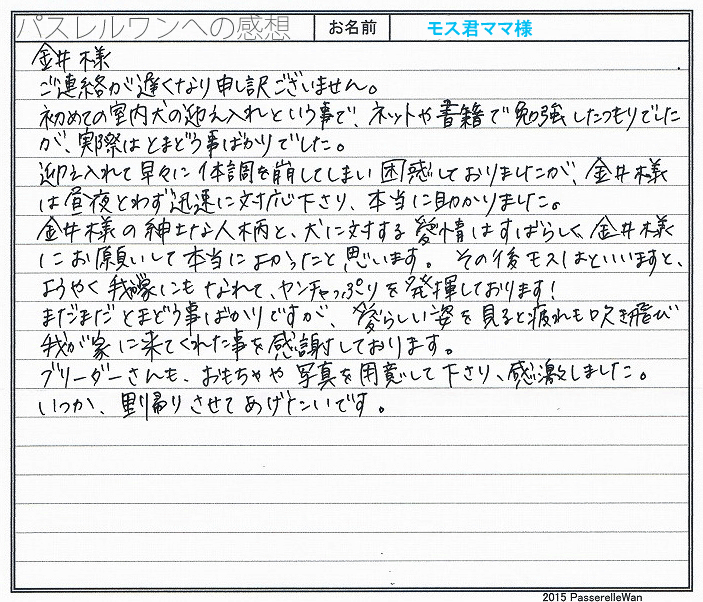 パスレルワンへの感想 お名前 モス君ママ様
金井様
ご連絡が遅くなり申し訳ございません。
初めての室内犬の迎え入れという事で、ネットや書籍で勉強したつもりでした
が、実際はとまどう事ばかりでした。
迎え入れて早々に体調を崩してしまい困惑しておりましたが、金井様
は昼夜とわず迅速に対応下さり、本当に助かりました。
金井様の紳士な人柄と、犬に対する愛情はすばらしく、金井様
にお願いして本当によかったと思います。その後モスはといいますと、
ようやく我が家にもなれて、ヤンチャっぷりを発揮しております!
まだまだとまどう事ばかりですが、愛らしい姿を見ると疲れも吹き飛び
我が家に来てくれた事を感謝しております。
ブリーダーさんも、おもちゃや写真を用意して下さり、感激しました。
いつか、里帰りさせてあげたいです。
2015 PasserelleWan